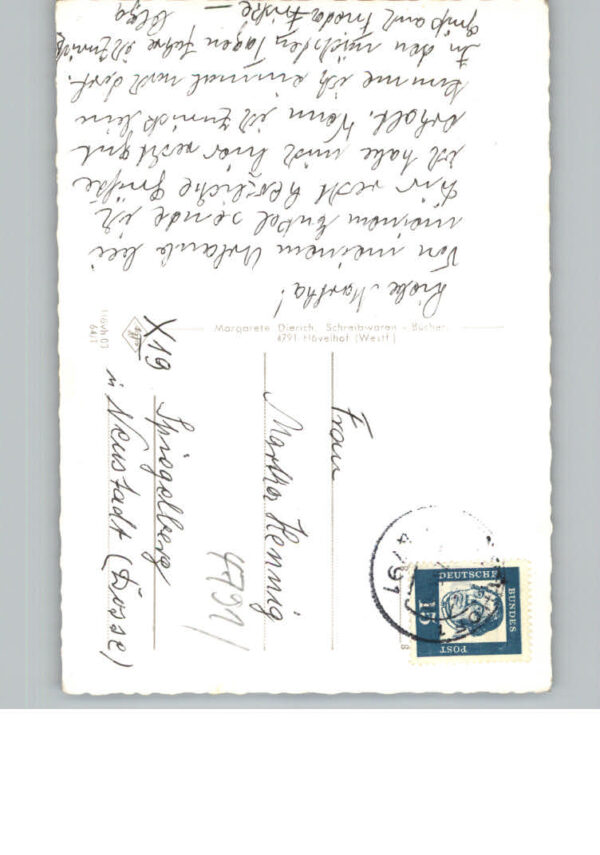 Liebe Martha!
Von meinem Urlaub bei
meinem Enkel sende ich
Dir recht herzliche Grüße
ich habe mich hier recht gut
erholt. Wenn ich zurück bin
komme ich einmal nach dort.
In den nächsten Tagen fahre ich zurück
Gruß auch Frieda Friske —
Olga
Margarete Dierich, Schreibwaren - Bücher,
4791 Hövelhof (Westf.)
Agfa
DEUTSCHE
BUNDES
POST
15
4791
Frau
Martha Hennig
4791
X19 Spiegelberg
in Neustadt (Dosse)